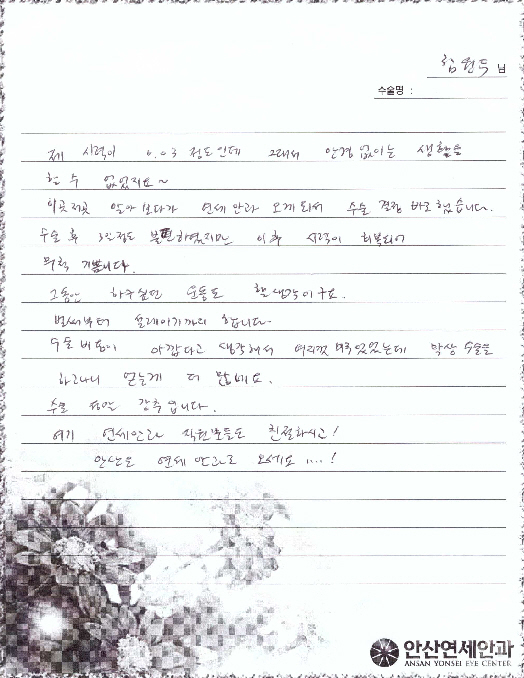 님
수술명 :
제 시력이 0.03 정도인데 그래서 안경없이는 생활을
할 수 없었지요~
이곳저곳 알아보다가 연세안과 오게되서 수술 결정 바로 했습니다.
수술 후 3일정도 불편하였지만 이후 시력이 회복되어
무척 기쁩니다.
그동안 하구싶던 운동도 할 생각이구요.
벌써부터 설레이기까지 합니다.
수술 비용이 아깝다고 생각해서 여지껏 미루었었는데 막상 수술을
하고나니 얻는게 더 많네요.
수술 강추입니다.
여기 연세안과 직원분들도 친절하시고!
안산은 연세안과로 오세요 ....!
안산연세안과
ANSAN YONSEI EYE CENTER